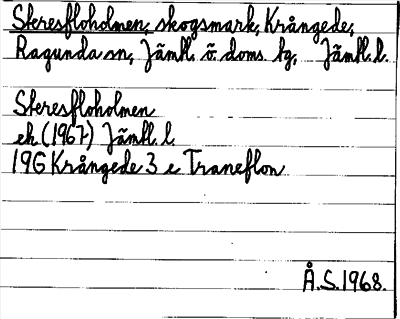 Steresfloholmen, skogsmark, Krångede,
Ragunda sn, Jämtl. ö. doms. tg, Jämtl. l.
Steresfloholmen
ek (1967) Jämtl. l.
19G Krångede 3 e Traneflon
Å.S. 1968.